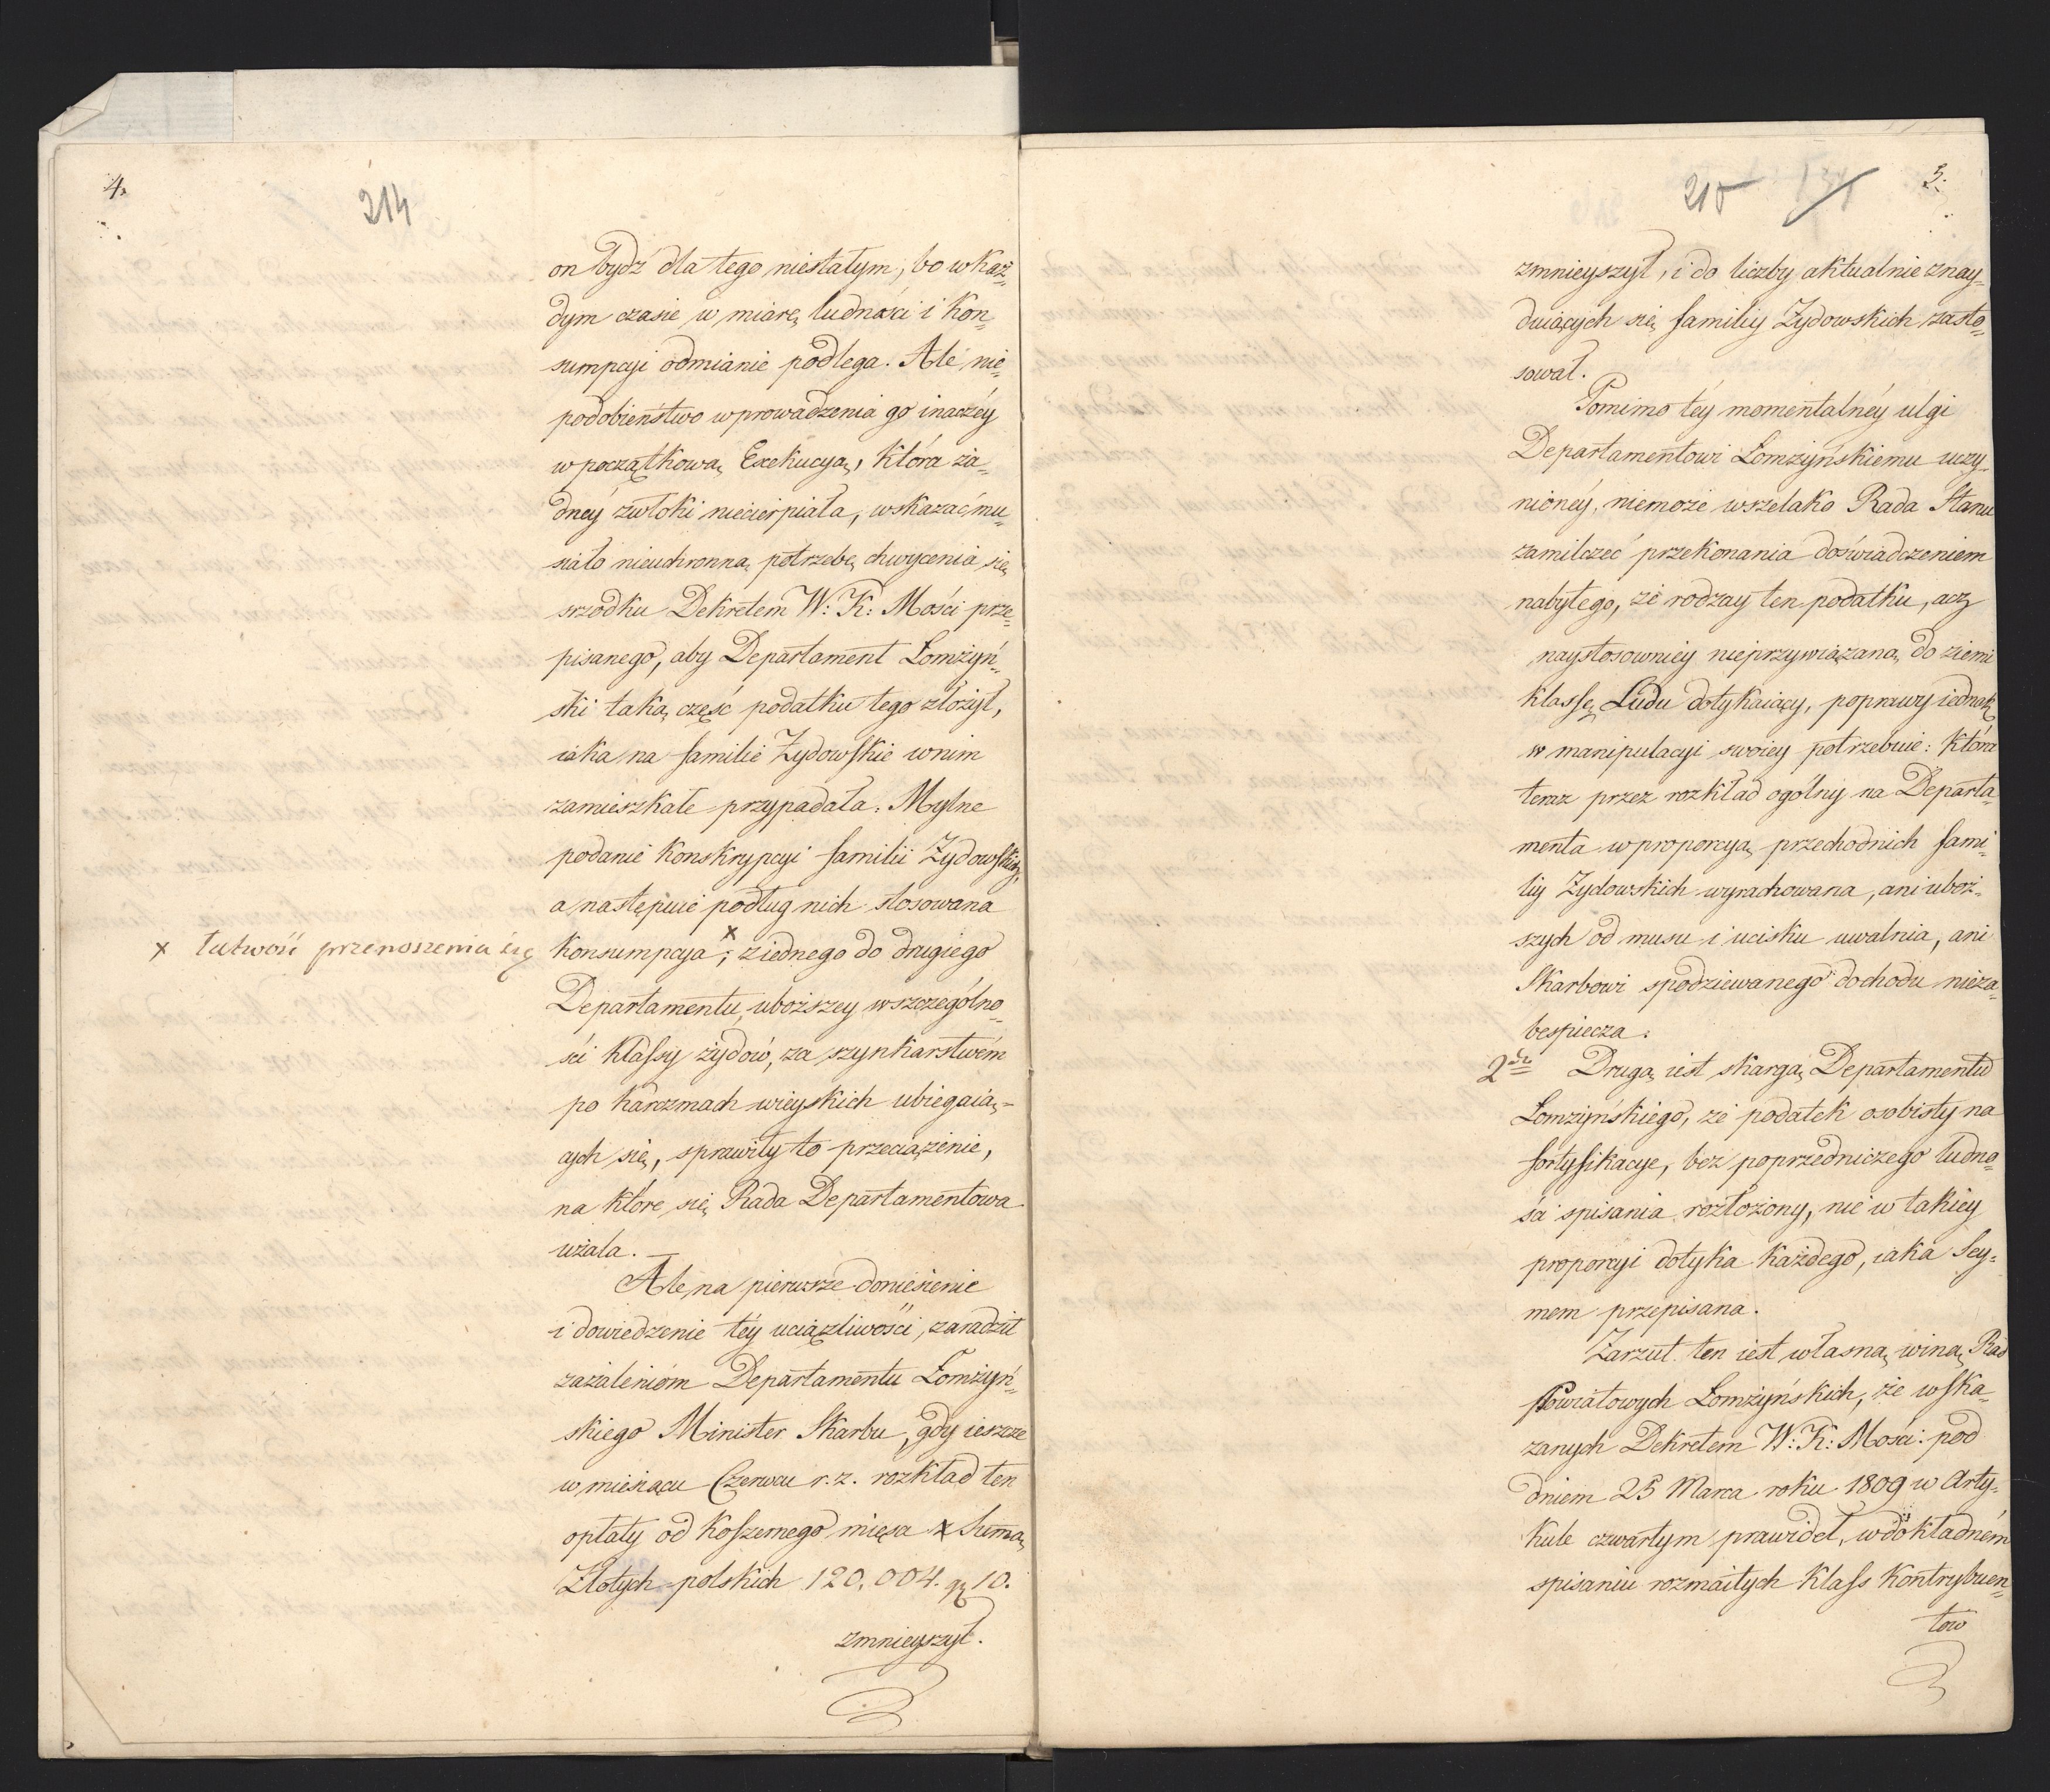 4.
214
on bydź dla tego niestałym, bo w każ=
dym czasie w miarę ludności i Kon=
sumpcyi odmianie podlega. Ale nie=
podobieństwo wprowadzenia go inaczéy
w początkową Exekucyą, która ża=
dnéy zwłoki niecierpiała, wskazać mu=
siało nieuchronną potrzebę chwycenia się
srzodku Dekretem W: K: Mości prze=
pisanego, aby Departament Łomżyń=
ski taką część podatku tego złożył,
iaka na familie Żydowskie w nim
zamieszkałe przypadała. Mylne
podanie Konskrypcyi familii Żydowskich,
a następnie podług nich stosowana
x łatwość przenoszenia się
Konsumpcya x; z iednego do drugiego
Departamentu, uboższey w szczególno=
ści Klassy żydów, za szynkarstwem
po karczmach wieyskich ubiegaią=
cych się, sprawiły to przeciążenie,
na które się Rada Departamentowa
użala. —
Ale na pierwsze doniesienie
i dowiedzenie téy uciążliwości, zaradził
zażaleniom Departamentu Łomżyń=
skiego Minister Skarbu, gdy ieszcze
w miesiącu Czerwcu r. z. rozkład ten
opłaty od Koszernego mięsa x Summą
Złotych polskich 120,004. gr 10.
zmnieyszył.
215
5.
zmnieyszył, i do liczby aktualnie znay=
duiących się familiy Żydowskich zasto=
sował.
Pomimo téy momentalnéy ulgi
Departamentowi Łomżyńskiemu uczy=
nionéy, niemoże wszelako Rada Stanu
zamilczeć przekonania doświadczeniem
nabytego, że rodzay ten podatku, acz
naystosowniey nieprzywiązaną do ziemi
klassę Ludu dotykaiący, poprawy iednak
w manipulacyi swoiey potrzebuie: która
teraz przez rozkład ogólny na Departa=
menta w proporcyą przechodnich fami=
liy Żydowskich wyrachowana, ani uboż=
szych od musu i ucisku uwalnia, ani
Skarbowi spodziewanego dochodu nieza=
bespiecza.
2re Drugą iest skargą Departamentu
Łomżyńskiego, że podatek osobisty na
fortyfikacye, bez poprzedniczego ludno=
ści spisania rozłożony, nie w takiey
proporcyi dotyka każdego, iaka Sey=
mem przepisana.
Zarzut ten iest własną winą Rad
Powiatowych Łomżyńskich, że wska=
zanych Dekretem W: K: Mości pod
dniem 25 Marca roku 1809 w Arty=
kule czwartym prawideł, w dokładném
spisaniu rozmaitych Klass Kontrybuen=
tow